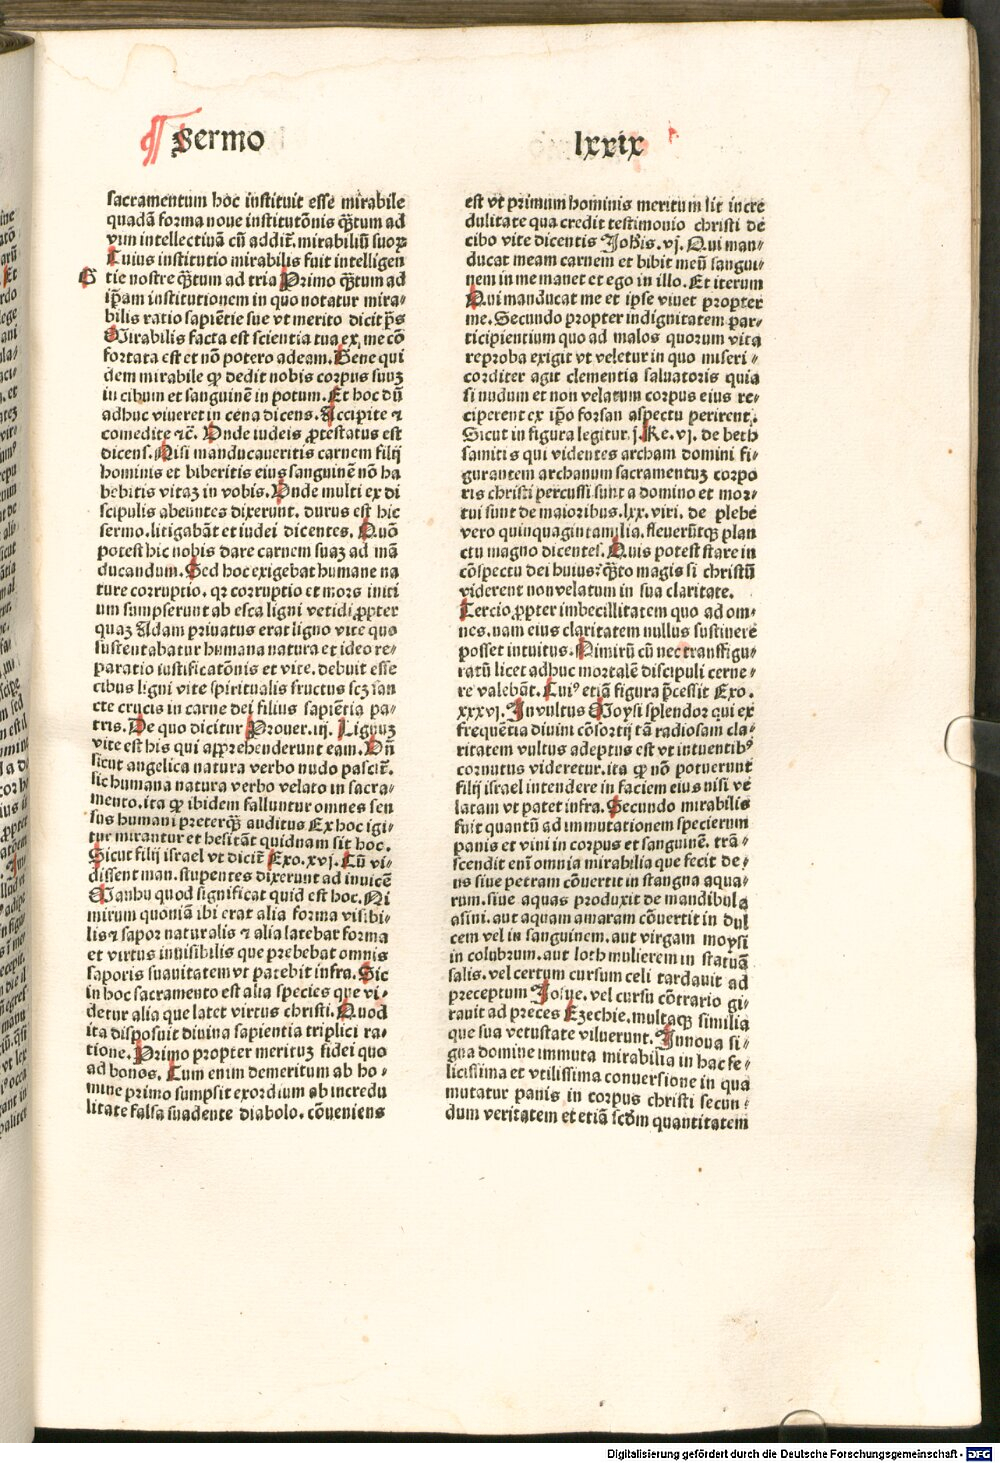 Sermo
lxxix
sacramentum hoc instituit esse mirabile
quadā forma noue institutōnis q̄ꝫtum ad
vim intellectiuā cū addit̄. mirabiliū suoꝝ
Cuius institutio mirabilis fuit intelligen
G tie nostre q̄ꝫtum ad tria Primo q̄ꝫtum ad
ip̄am institutionem in quo notatur mira⸗
bilis ratio sapiētie sue vt merito dicit p̄s
Mirabilis facta est scientia tua ex me cō
fortata est et nō potero ad eam. Bene qui
dem mirabile ꝙ dedit nobis corpus suuꝫ
in cibum et sanguinē in potum. Et hoc dū
adhuc viueret in cena dicens. Accipite ⁊
comedite ⁊c̄. Unde iudeis ꝓtestatus est
dicens. Nisi manducaueritis carnem filij
hominis et biberitis eius sanguinē nō ha
bebitis vitaꝫ in vobis. Unde multi ex di
scipulis abeuntes dixerunt. durus est hic
sermo. litigabāt et iudei dicentes. Quō
potest hic nobis dare carnem suaꝫ ad mā
ducandum. Sed hoc exigebat humane na
ture corruptio. qꝛ corruptio et mors initi
um sumpserunt ab esca ligni vetidi ꝓpter
quaꝫ Adam priuatus erat ligno vite quo
sustentabatur humana natura et ideo re⸗
paratio iustificatōnis et vite. debuit esse
cibus ligni vite spiritualis fructus scꝫ san
cte crucis in carne dei filius sapiētia pa⸗
tris. De quo dicitur Prouer. iij. Lignuꝫ
vite est his qui apprehenderunt eam. Uñ
sicut angelica natura verbo nudo pascit̄.
sic humana natura verbo velato in sacra⸗
mento. ita ꝙ ibidem falluntur omnes sen
sus humani preterq̄ꝫ auditus Ex hoc igi⸗
tur mirantur et hesitāt quidnam sit hoc.
Sicut filij israel vt dicit̄ Exo. xvj. Cū vi⸗
dissent man. stupentes dixerunt ad inuicē
Manhu quod significat quid est hoc. Ni
mirum quoniā ibi erat alia forma visibi⸗
lis ⁊ sapor naturalis ⁊ alia latebat forma
et virtus inuisibilis que prebebat omnis
saporis suauitatem vt patebit infra. Sic
in hoc sacramento est alia species que vi⸗
detur alia que latet virtus christi. Quod
ita disposuit diuina sapientia triplici ra⸗
tione. Primo propter merituꝫ fidei quo
ad bonos. Cum enim demeritum ab ho⸗
mine primo sumpsit exordium ab incredu
litate falsa suadente diabolo. cōueniens
est vt primum hominis meritum sit incre
dulitate qua credit testimonio christi de
cibo vite dicentis Joh̄is. vj. Qui man⸗
ducat meam carnem et bibit meū sangui⸗
nem in me manet et ego in illo. Et iterum
Qui manducat me et ipse viuet propter
me. Secundo propter indignitatem par⸗
ticipientium quo ad malos quorum vita
reproba exigit vt veletur in quo miseri⸗
corditer agit clementia saluatoris quia
si nudum et non velatum corpus eius re⸗
ciperent ex ip̄o forsan aspectu perirent.
Sicut in figura legitur. j. Re. vj. de beth
samitis qui videntes archam domini fi⸗
gurantem archanum sacramentuꝫ corpo
ris christi percussi sunt a domino et mor⸗
tui sunt de maioribus. lxx. viri. de plebe
vero quinquagintamilia. fleuerūtqꝫ plan
ctu magno dicentes. Quis potest stare in
cōspectu dei huius? q̄ꝫto magis si christū
viderent non velatum in sua claritate.
Tercio. ꝓpter imbecillitatem quo ad om⸗
nes. nam eius claritatem nullus sustinere
posset intuitus. Nimirū cū nec transfigu⸗
ratū licet adhuc mortalē discipuli cerne⸗
re valebāt. Cuiꝰ etiā figura p̄cessit Exo.
xxxvj. In vultus Moysi splendor qui ex
frequētia diuini cōsortij tā radiosam cla⸗
ritatem vultus adeptus est vt intuentibꝰ
cornutus videretur. ita ꝙ nō potuerunt
filij israel intendere in faciem eius nisi ve
latam vt patet infra. Secundo mirabilis
fuit quantū ad immutationem specierum
panis et vini in corpus et sanguinē. trā⸗
scendit enī omnia mirabilia que fecit de⸗
us siue petram cōuertit in stangna aqua⸗
rum. siue aquas produxit de mandibula
asini. aut aquam amaram cōuertit in dul
cem vel in sanguinem. aut virgam moysi
in colubrum. aut loth mulierem in statuā
salis. vel certum cursum celi tardauit ad
preceptum Josue. vel cursū cōtrario gi⸗
rauit ad preces Ezechie. multaqꝫ similia
que sua vetustate viluerunt. Innoua si⸗
gna domine immuta mirabilia in hac fe⸗
licissima et vtilissima conuersione in qua
mutatur panis in corpus christi secun⸗
dum veritatem et etiā scd̄m quantitatem
Digitalisierung gefördert durch die Deutsche Forschungsgemeinschaft - DFG